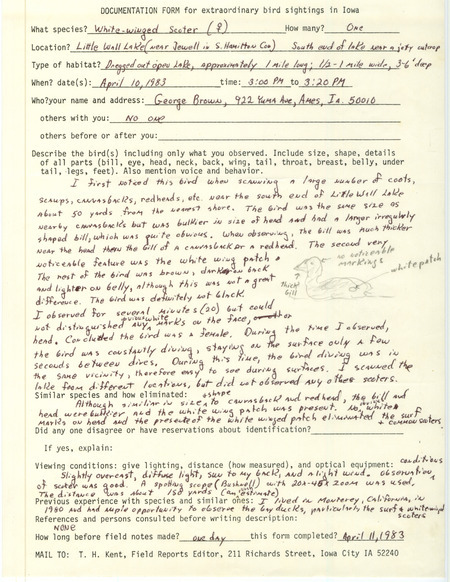 DOCUMENTATION FORM for extraordinary bird sightings in Iowa
What species? White-winged Scoter (♀) How many? One
Location? Little Wall Lake (near Jewell in S. Hamilton Co.) South end of lake near a jetty outcrop
Type of habitat? Dredged out open lake, approximately 1 mile long; 1/2-1 mile wide, 3-6' deep
When? date(s): April 10, 1983 time: 3:00 PM to 3:20 PM
Who? your name and address: George Brown, 922 Yuma Ave, Ames, Ia. 50010
others with you: No one
others before or after you:
Describe the bird(s) including only what you observed. Include size, shape, details
of all parts (bill, eye, head, neck, back, wing, tail, throat, breast, belly, under
tail, legs, feet). Also mention voice and behavior.
I first noticed this bird when scanning a large number of coots,
scaups, canvasbacks, redheads, etc. near the south end of Little Wall Lake
about 50 yards from the nearest shore. The bird was the same size as
nearby canvasbacks but was bulkier in size of head and had a larger irregularly
shaped bill, which was quite obvious. When observing, the bill was much thicker
near the head than the bill of a canvasback or a redhead. The second very
noticeable feature was the white wing patch.
The rest of the bird was brown, darker on back
and lighter on belly, although this was not a great
difference. The bird was definitely not black.
no noticeable
markings
white patch
thick
bill
I observed for several minutes (20) but could
not distinguished any obvious white marks on the face, or
head. Concluded the bird was a female. During the time I observed,
the bird was constantly diving, staying on the surface only a few
seconds between dives. During this time, the bird diving was in
the same vicinity, therefore easy to see during surfaces. I scanned the
lake from different locations, but did not observed any other scoters.
Similar species and how eliminated: + shape
Although similar in size to canvasback and redhead, the bill and
head were bulkier and the white wing patch was present. No obvious white
marks on head and the presence of the white winged patch eliminated the surf
+ common scoters
Did any one disagree or have reservations about identification?
If yes, explain:
Viewing conditions: give lighting, distance (how measured), and optical equipment: conditions
Slightly overcast, diffuse light, sun to my back, and slight wind. Observation
of scoter was good. A spotting scope (Bushnell) with 20x-45x zoom was used.
The distance was about 150 yards (an estimate)
Previous experience with species and similar ones: I lived in Monterey, California, in
1980 and had ample opportunity to observe the bay ducks, particularly the surf & white winged
scoters
References and persons consulted before writing description:
NONE
How long before field notes made? one day this form completed? April 11, 1983
MAIL TO: T. H. Kent, Field Reports Editor, 211 Richards Street, Iowa City IA 52240